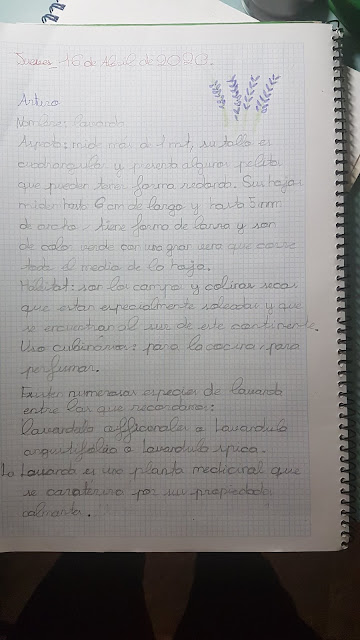 Jueves_16 de Abril de 2020.
Arturo
Nombre: lavanda
Aspecto: mide más de 1 mt, su tallo es
cuadrangular y presenta algunos pelitos
que pueden tener forma redonda. Sus hojas
miden hasta 6 cm de largo y hasta 5 mm
de ancho tiene forma de lanza y son
de color verde con una gran vena que corre
todo el medio de la hoja.
Habitat: son los campos y colinas secas
que estan especialmente soleadas y que
se encuentran al sur de este continente.
Uso culinarios: para la cocina, para
perfumar.
Existen numerosas especies de lavanda
entre las que recordamos:
lavandula officonales o lavandula
angustifolia o lavandula spica.
La Lavanda es una planta medicinal que
se caracteriza por sus propiedades
calmantes.